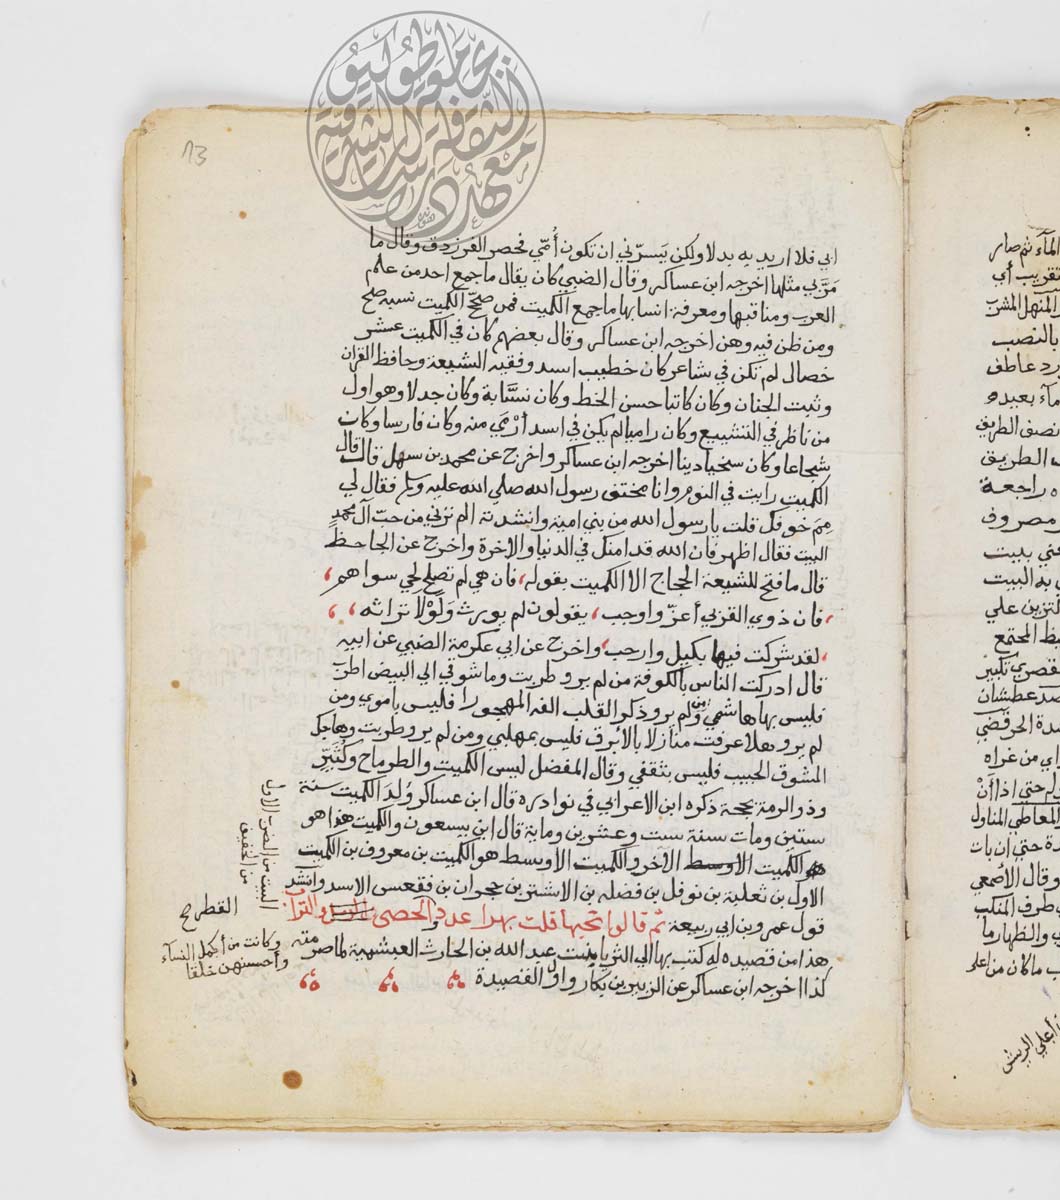 ابي فلا اريد به بدلا ولكن يسرّني ان تكون أُمّي فحصر الفرزدق وقال ما
مرّبي مثلها اخرجه ابن عساكر وقال الضبي كان يقال ما جمع احد من علم
العرب ومناقبها ومعرفة انسابها ما جمع الكميت فمن صحّح الكميت نسبه صح
ومن ظن فيه وهن اخرجه ابن عساكر وقال بعضهم كان في الكميت عشر
خصال لم تكن في شاعر كان خطيب اسد وفقيه الشيعة وحافظ القران
وثبت الجنان وكان كاتبا حسن الخط وكان نسّابة وكان جدلا وهو اول
من ناظر في التشييع وكان راميا لم يكن في اسد أرْمي منه وكان فارسا وكان
شجاعا وكان سخيا دينا اخرجه ابن عساكر واخرج عن محمد بن سهل قال قال
الكميت رايت في النوم وانا مختف رسول الله صلي الله عليه وسلم فقال لي
مِمَ خوفك قلت يا رسول الله من بني امية وانشدته الم ترني من حبّ آل محمدٍ
البيت فقال اظهر فان الله قد امنك في الدنيا والاخرة واخرج عن الجاحظ
قال ما فتح للشيعة الحجاج الا الكميت بقوله، فان هي لم تصلح لحي سواهم،
، فان ذوي القربي أعزّ واوجب، يقولون لم يورث ولَوْلا تراثه، ،
، لقد شركت فيها بكيل وارحب، واخرج عن ابي عكرمة الضبي عن ابيه
قال ادركت الناس بالكوفة من لم يرو طربت وما شوقي الي البيض اطرب
فليس بها هاشمي ومن لم يرو ذكر القلب الفه المهجورا فليس باموي ومن
لم يرو هلا عرفت منازلا بالابرق فليس بمهلبي ومن لم يرو طربت وهاجك
المشوق الحبيب فليس بثقفي وقال المفضل ليس الكميت والطرماح وكُثَيّر
وذو الرمة بحجة ذكره ابن الاعرابي في نوادره قال ابن عساكر وُلدَ الكميت سنة
ستين ومات سنة ست وعشرين وماية قال ابن يسعون والكميت هذا هو
هو الكميت الاوسط الآخر والكميت الاوسط هو الكميت بن معروف بن الكميت
الاول بن ثعلبة بن نوفل بن فضله بن الاشتر بن جحوان بن فقعس الاسد وانشد
قول عمرو بن ابي ربيعة ثم قالوا تحبها قلت بهرا عدد الحصي والتراب
هذا من قصيده له كتب بها الي الثريا بنت عبد الله بن الحارث العبشمية لما صرمته
كذا اخرجه ابن عساكر عن الزبير بن بكّار واول القصيدة
البيت من الضرب الاول
من الخفيف
القطر مح
وكانت من أجمل النساء
وأحسنهن خلقا
الماء ثم صار
المنهل المشرب
بالنصب
رد عاطف
ماء بعيده
نصف الطريق
الطريق
راجعة
مصروف
ببيت
به البيت
علي
المجتمع
عطشان
المعاطي المناول
حتي ان بات
وقال الاصمعي
طرف المنكب
ما كان من اعلي
أعلي الريش